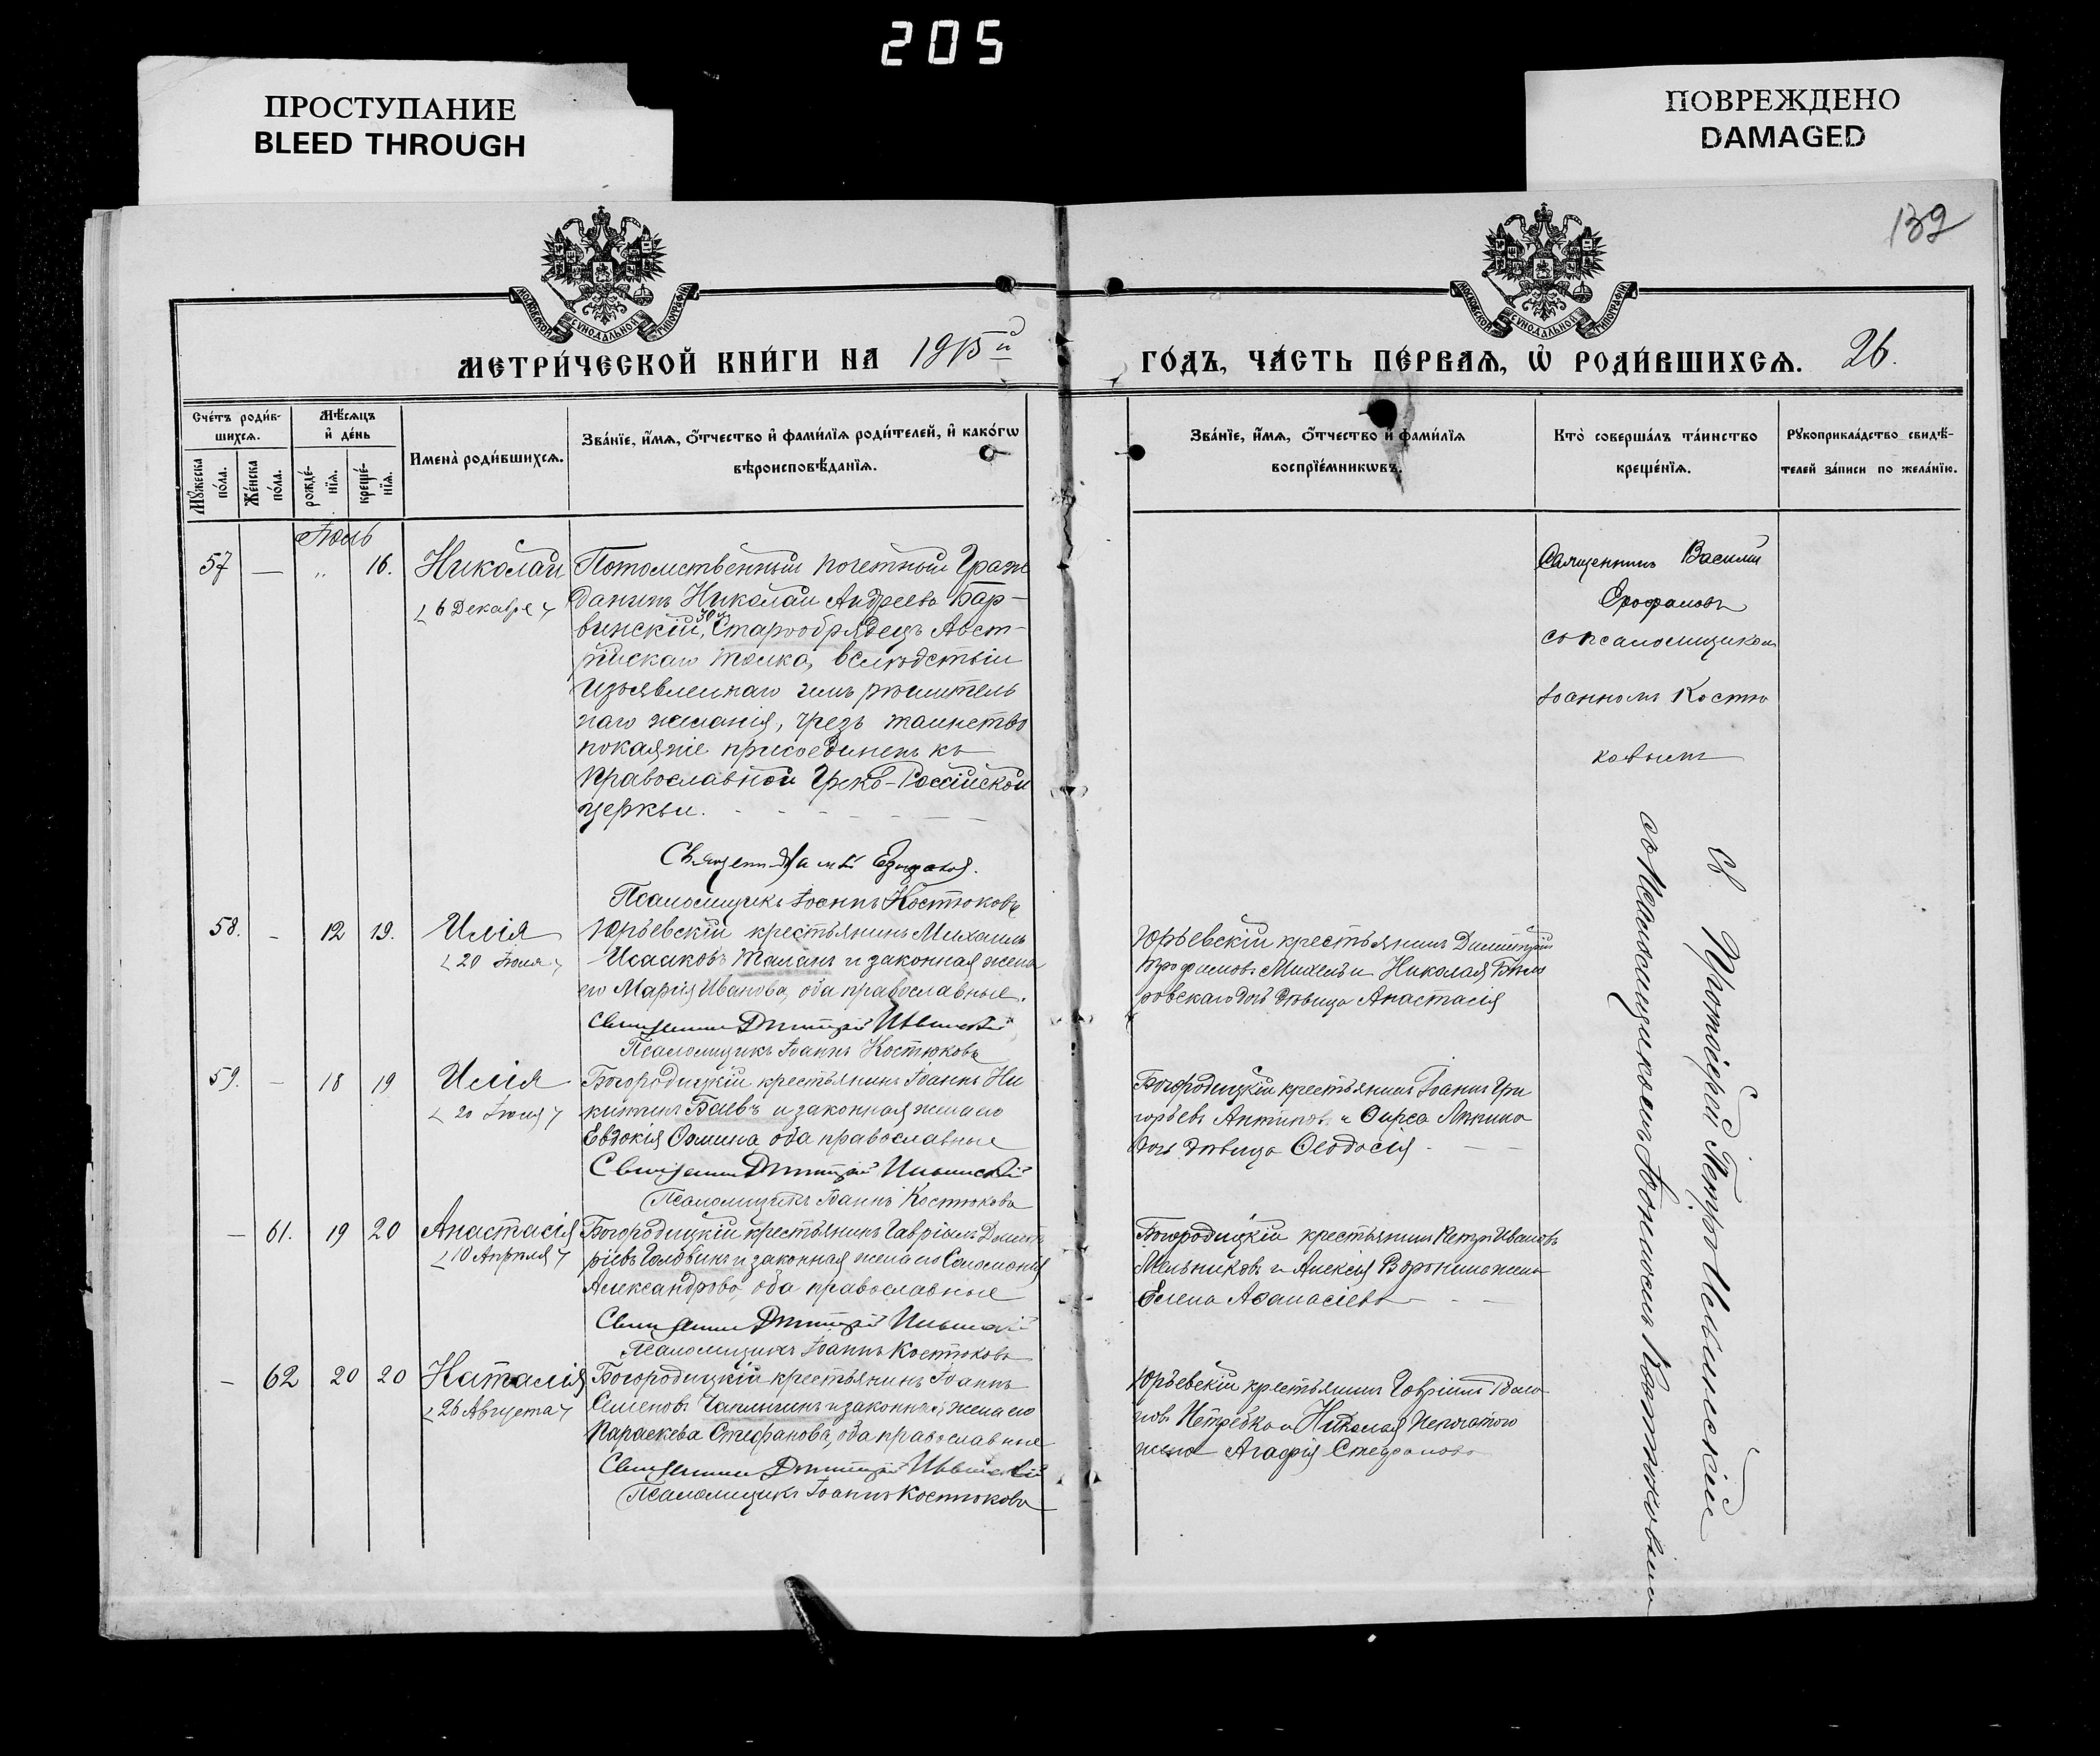 205
ПРОСТУПАНИЕ
BLEED THROUGH
ПОВРЕЖДЕНО
DAMAGED
139
МОСКОВСКОЙ СѴНОДАЛЬНОЙ ТИПОГРАФІИ
МОСКОВСКОЙ СѴНОДАЛЬНОЙ ТИПОГРАФІИ
МЕТРИ́ЧЕСКОЙ КНИ́ГИ НА 1915й
ГО́ДЪ, ЧА́СТЬ ПЕ́РВАѦ, Ѡ РОДИ́ВШИХСѦ. 26.
Сче́тъ роди́в-
шихсѧ.
Мꙋ́жеска по́ла.
Же́нска по́ла.
Мѣ́сѧцъ
и҆ де́нь
рожде́-
нїѧ.
креще́-
нїѧ.
Имена̀ роди́вшихсѧ.
Зва́нїе, и҆́мѧ, ѻ҆́тчество и҆ фами́лїѧ роди́телей, и҆ како́гѡ
вѣроисповѣ́данїѧ.
Зва́нїе, и҆́мѧ, ѻ҆́тчество и҆ фами́лїѧ
воспрїе́мникѡвъ.
Кто̀ соверша́лъ та́инство
креще́нїѧ.
Рꙋкоприкла́дство свидѣ́-
телей за́писи по жела́нїю.
Іюль
57 — „ 16. Николай
6 Декабря
Потомственный почетный Граж
данинъ Николай Андреевъ Бар-
винскій, 30 л. Старообрядецъ Авст-
рійскаго толка, вслѣдствіи
изъявленнаго имъ рѣшитель
наго желанія, чрезъ таинство
покаяніе присоединенъ къ
Православной Греко-Россійской
церкви.
Псаломщикъ Іоаннъ Костюковъ
Священникъ Василій
Ерофаловъ
съ псаломщикомъ
Іоанномъ Костю
ковымъ
58. — 12 19. Илія
20 Іюля
Юрьевскій крестьянинъ Михаилъ
Исааковъ Таланъ и законная жена
его Марія Иванова, оба православные.
Священникъ Димитрій Ильинскій
Псаломщикъ Іоаннъ Костюковъ
Юрьевскій крестьянинъ Димитрій
и Николая
дочь дѣвица Анастасія
59. — 18 19 Илія
20 Іюля
Богородицкій крестьянинъ Іоаннъ Ни
китинъ Баевъ и законная жена его
Евдокія Ѳомина оба православные
Священникъ Димитрій Ильинскій
Псаломщикъ Іоаннъ Костюковъ
Богородицкій крестьянинъ Іоаннъ Гри
горьевъ Антиповъ и Ѳирса
дочь дѣвица Ѳеодосія
— 61. 19 20 Анастасія
10 Апрѣля
Богородицкій крестьянинъ Гавріилъ Димит
ріевъ Головинъ и законная жена его Соломонія
Александрова, оба православные
Священникъ Димитрій Ильинскій
Псаломщикъ Іоаннъ Костюковъ
Богородицкій крестьянинъ Петръ Ивановъ
Мельниковъ и Алексія Воронина жена
Елена Аѳанасіева
— 62 20 20 Наталія
26 Августа
Богородицкій крестьянинъ Іоаннъ
Семеновъ Чаплыгинъ и законная жена его
Параскева Стефанова, оба православные
Священникъ Димитрій Ильинскій
Псаломщикъ Іоаннъ Костюковъ
Юрьевскій крестьянинъ Гавріилъ
Петребко и Николая Непочатого
жена Агафія Стефанова
Св. Протоіерей Петръ Ильинскій
съ Псаломщикомъ Іоанномъ Костюковымъ